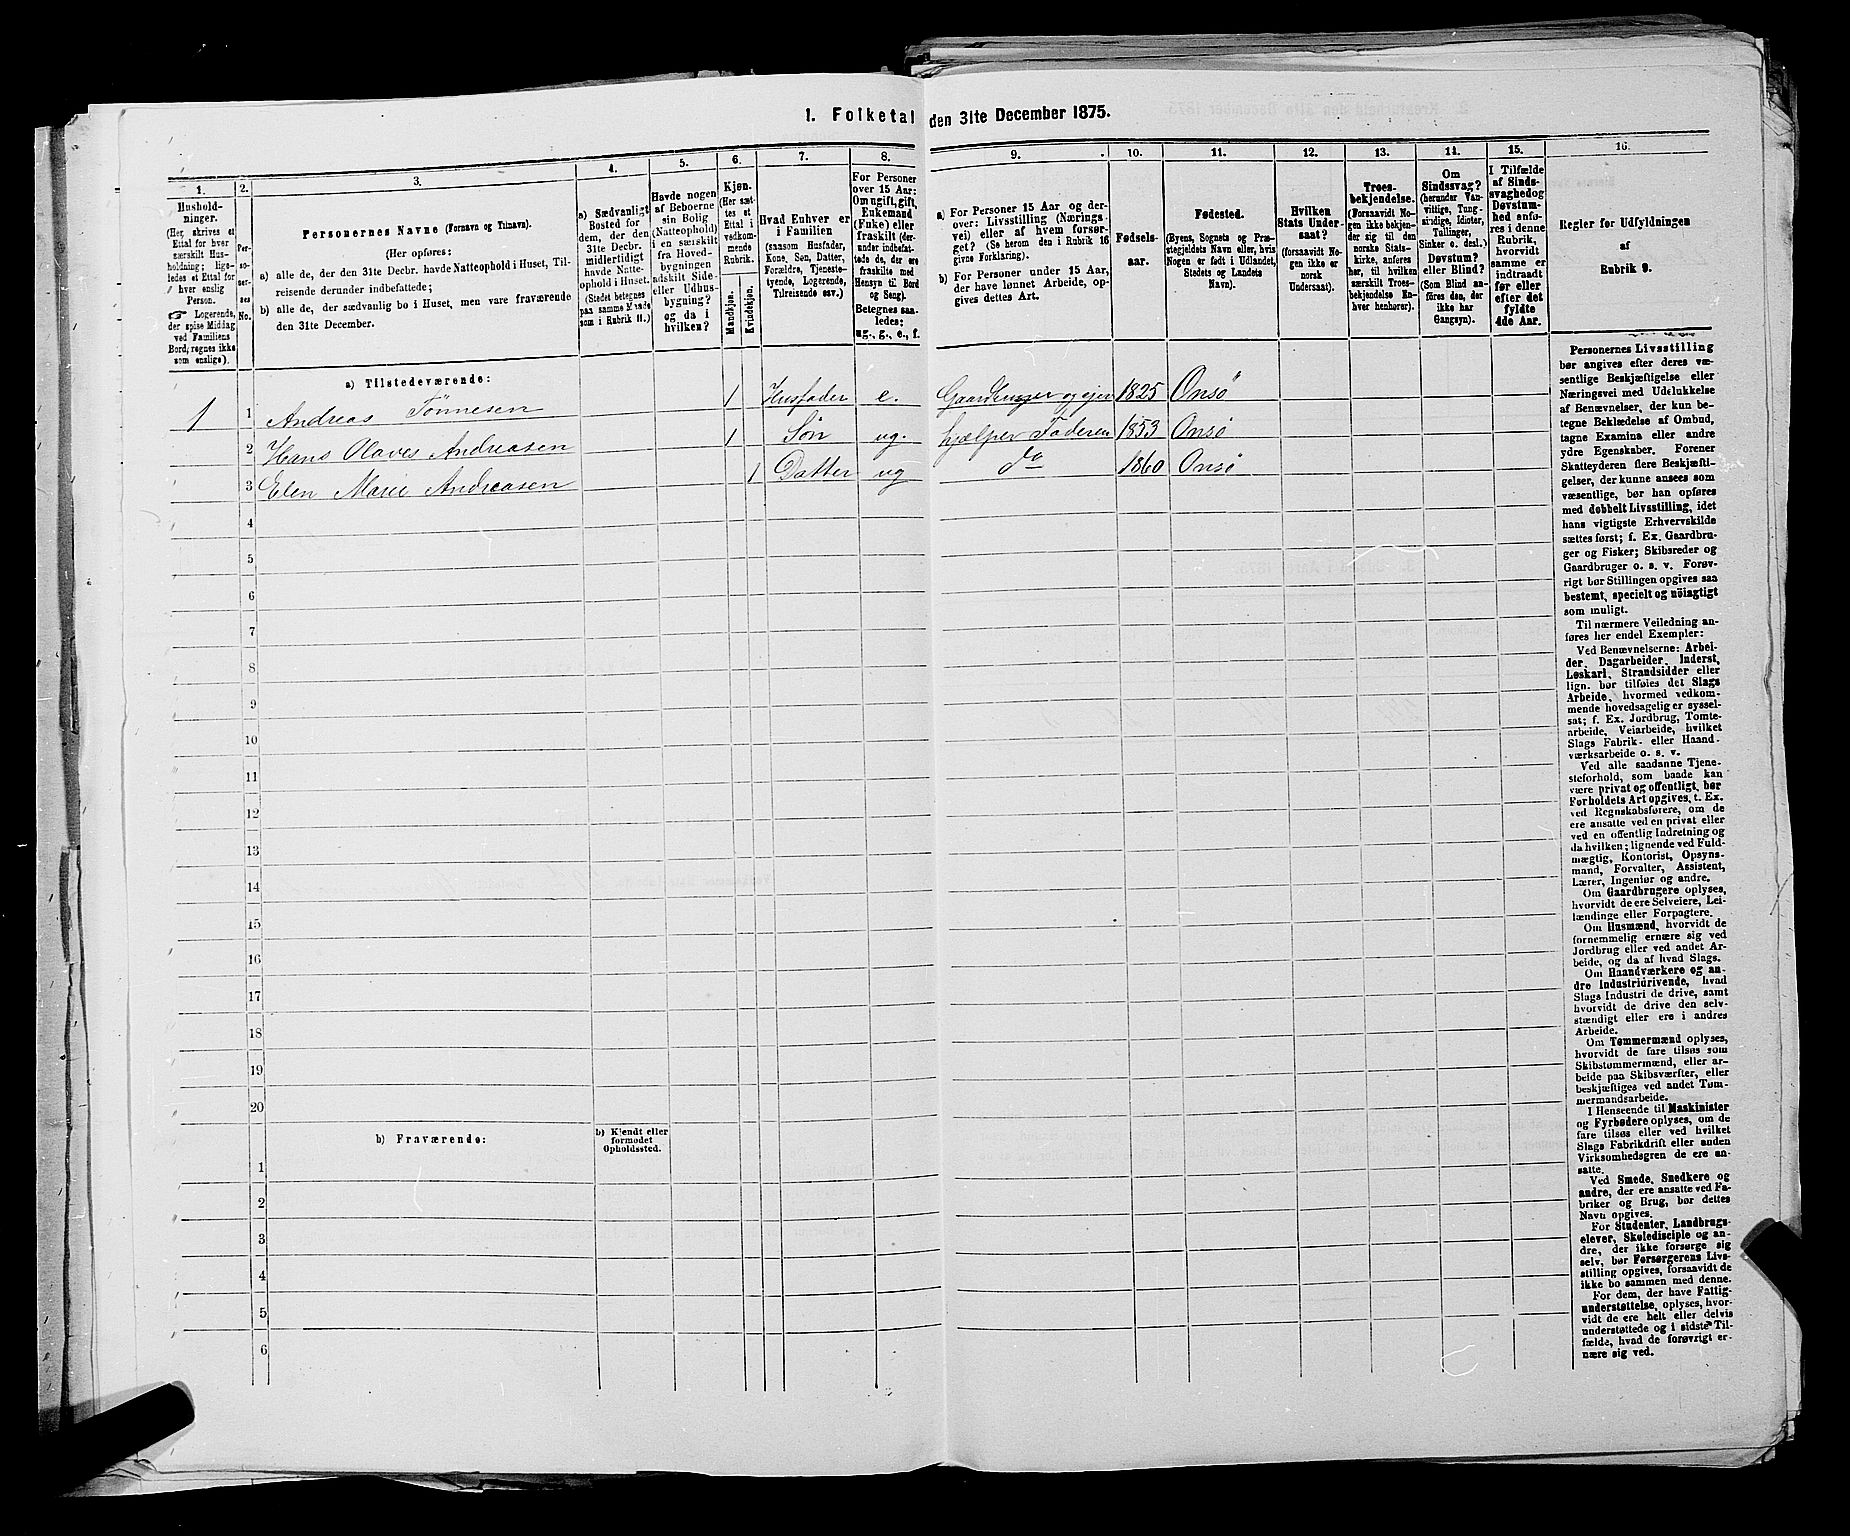 1. Folketal den 31te December 1875.
1.
2.
3.
4.
5.
6.
7.
8.
9.
10.
11.
12.
13.
14.
15.
16.
Hushold-
ninger.
(Her skrives et
Ettal for hver
særskilt Hus-
holdning; lige-
ledes et Ettal for
hver enslig
Person.
☞ Logerende,
der spise Middag
ved Familiens
Bord, regnes ikke
som enslige).
Per-
so-
ner-
nes
No.
Personernes Navne (Fornavn og Tilnavn).
(Her opføres:
a) alle de, der den 31te Decbr. havde Natteophold i Huset, Til-
reisende derunder indbefattede;
b) alle de, der sædvanlig bo i Huset, men vare fraværende
den 31te December.
a) Sædvanligt
Bosted for
dem, der den
31te Decbr.
midlertidigt
havde Natte-
ophold i Huset.
(Stedet betegnes
paa samme Maade
som i Rubrik 11.)
Havde nogen
af Beboerne
sin Bolig
(Natteophold)
i en særskilt
fra Hoved-
bygningen
adskilt Side-
eller Udhus-
bygning?
og da i
hvilken?
Kjøn.
(Her sæt-
tes et
Ettal i
vedkom-
mende
Rubrik.
Mandkjøn.
Kvindekjøn.
Hvad Enhver er
i Familien
(saasom Husfader,
Kone, Søn, Datter,
Forældre, Tjeneste-
tyende, Logerende,
Tilreisende osv.)
For Personer
over 15 Aar:
Om ugift, gift,
Enkemand
(Enke) eller
fraskilt (der-
under indbefat-
tede de, der ere
fraskilte med
Hensyn til Bord
og Seng).
Betegnes saa-
ledes:
ug., g., e., f.
a) For Personer 15 Aar og der-
over: Livsstilling (Nærings-
vei) eller af hvem forsør-
get? (Se herom den i Rubrik 16
givne Forklaring).
b) For Personer under 15 Aar,
der have lønnet Arbeide, op-
gives dettes Art.
Fødsels-
aar.
Fødested.
(Byens, Sognets og Præ-
stegjeldets Navn eller, hvis
Nogen er født i Udlandet,
Stedets og Landets
Navn).
Hvilken
Stats Under-
saat?
(forsaavidt No-
gen ikke er
norsk
Undersaat).
Troes-
bekjendelse.
(Forsaavidt No-
gen ikke bekjen-
der sig til den
norske Stats-
kirke, anføres
her, til hvilken
særskilt Troes-
bekjendelse En-
hver henhører).
Om
Sindssvag?
(herunder Van-
vittige, Tung-
sindige, Idioter,
Tullinger,
Sinker o. desl.)
Døvstum?
eller Blind?
(Som Blind an-
føres den, der
ikke har
Gangsyn).
I Tilfælde
af Sinds-
svaghed og
Døvstum-
hed anfø-
res i denne
Rubrik,
hvorvidt
samme er
indtraadt
før eller
efter det
fyldte
4de Aar.
Regler for Udfyldningen
af
Rubrik 9.
a) Tilstedeværende:
1 1 Andreas Tønnesen 1 Husfader e. Gaardbruger og ejer 1825 Onsö
2 Hans Olaves Andreasen 1 Søn ug. hjælper Faderen 1853 Onsö
3 Elen Marie Andreasen 1 Datter ug do 1860 Onsö
4
5
6
7
8
9
10
11
12
13
14
15
16
17
18
19
20
b) Fraværende:
b) Kjendt eller
formodet
Opholdssted.
1
2
3
4
5
6
Personernes Livsstilling
bør angives efter deres væ-
sentlige Beskjæftigelse eller
Næringsvei med Udelukkelse
af Benævnelser, der kun be-
tegne Beklædelse af Ombud,
tagne Examina eller andre
ydre Egenskaber. Forener
Skatteyderen flere Beskjæfti-
gelser, der kunne ansees som
væsentlige, bør han opføres
med dobbelt Livsstilling, idet
hans vigtigste Erhvervskilde
sættes først; f. Ex. Gaardbru-
ger og Fisker; Skibsreder og
Gaardbruger o. s. v. Forøv-
rigt bør Stillingen opgives saa
bestemt, specielt og nöiagtigt
som muligt.
Til nærmere Veiledning an-
føres her endel Exempler:
Ved Benævnelserne: Arbei-
der, Dagarbeider, Inderst,
Løskarl, Strandsidder eller
lign. bør tilføies det Slags
Arbeide, hvormed vedkom-
mende hovedsagelig er syssel-
sat; f. Ex. Jordbrug, Tomte-
arbeide, Veiarbeide, hvilket
Slags Fabrik- eller Haand-
værksarbeide o. s. v.
Ved alle saadanne Tjene-
steforhold, som baade kan
være privat og offentligt, bør
Forholdets Art opgives, t. Ex.
ved Regnskabsførere, om de
ere ansatte ved en privat eller
ved en offentlig Indretning og
da hvilken; lignende ved Fuld-
mægtig, Kontorist, Opsyns-
mand, Forvalter, Assistent,
Lærer, Ingeniør og andre.
Om Gaardbrugere oplyses,
hvorvidt de ere Selveiere, Lei-
lændinge eller Forpagtere.
Om Husmænd, hvorvidt de
fornemmelig ernære sig ved
Jordbrug eller ved andet Ar-
beide, og da af hvad Slags.
Om Haandværkere og an-
dre Industridrivende, hvad
Slags Industri de drive, samt
hvorvidt de drive den selv-
stændigt eller ere i andres
Arbeide.
Om Tømmermænd oplyses,
hvorvidt de fare tilsøs som
Skibstømmermænd, eller ar-
beide paa Skibsværfter, eller
beskjæftiges ved andet Tøm-
mermandsarbeide.
I Henseende til Maskinister
og Fyrbødere oplyses, om de
fare tilsøs eller ved hvilket
Slags Fabrikdrift eller anden
Virksomhedsgren de ere an-
satte.
Ved Smede, Snedkere og
andre, der ere ansatte ved Fa-
briker og Brug, bør dettes
Navn opgives.
For Studenter, Landbrugs-
elever, Skoledisciple og an-
dre, der ikke forsørge sig
selv, bør Forsørgerens Livs-
stilling opgives, forsaavidt de
ikke bo sammen med denne.
For dem, der have Fattig-
understøttelse, oplyses, hvor-
vidt de ere helt eller delvis
understøttede og i sidste Til-
fælde, hvad de forøvrigt er-
nære sig ved.